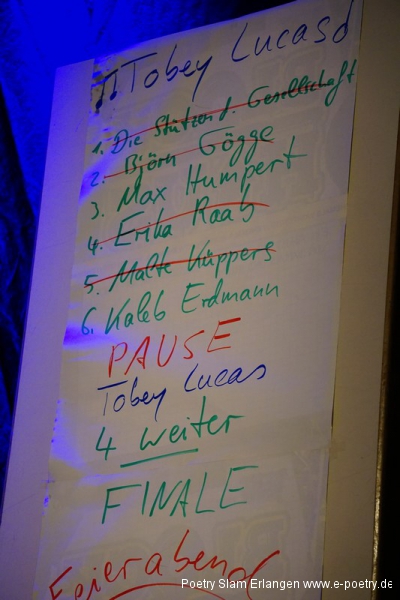 ♫ Tobey Lucas
1. Die Stützen d. Gesellschaft
2. Björn Gögge
3. Max Humpert
4. Erika Raab
5. Malte Küppers
6. Kaleb Erdmann
PAUSE
Tobey Lucas
4 weiter
FINALE
Feierabend
Poetry Slam Erlangen www.e-poetry.de